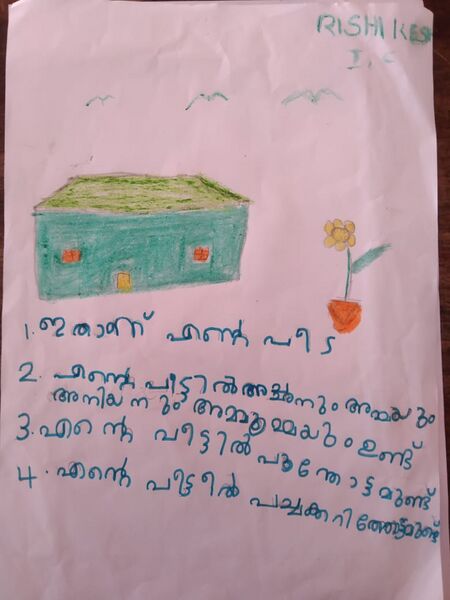 RISHIKESH
I. C
1. ഇതാണ് എന്റെ വീട
2. എന്റെ വീട്ടിൽ അച്ഛനും അമ്മയും
അനിയനും അമ്മൂമ്മയും ഉണ്ട്
3. എന്റെ വീട്ടിൽ പൂന്തോട്ടമുണ്ട്
4. എന്റെ വീട്ടിൽ പച്ചക്കറിത്തോട്ടമുണ്ട്